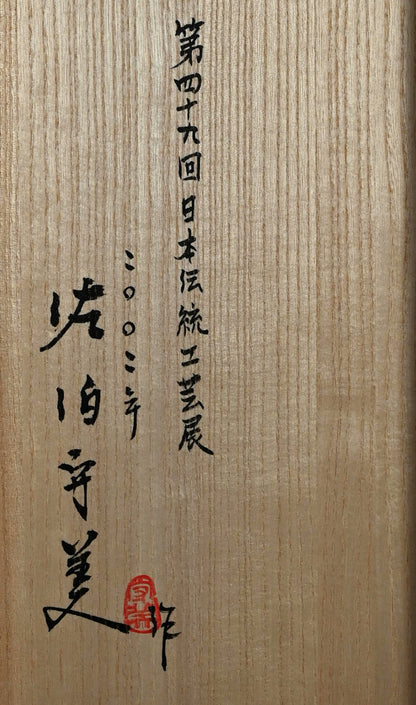 第四十九回日本伝統工芸展
二〇〇二年
佐伯守美作
守美